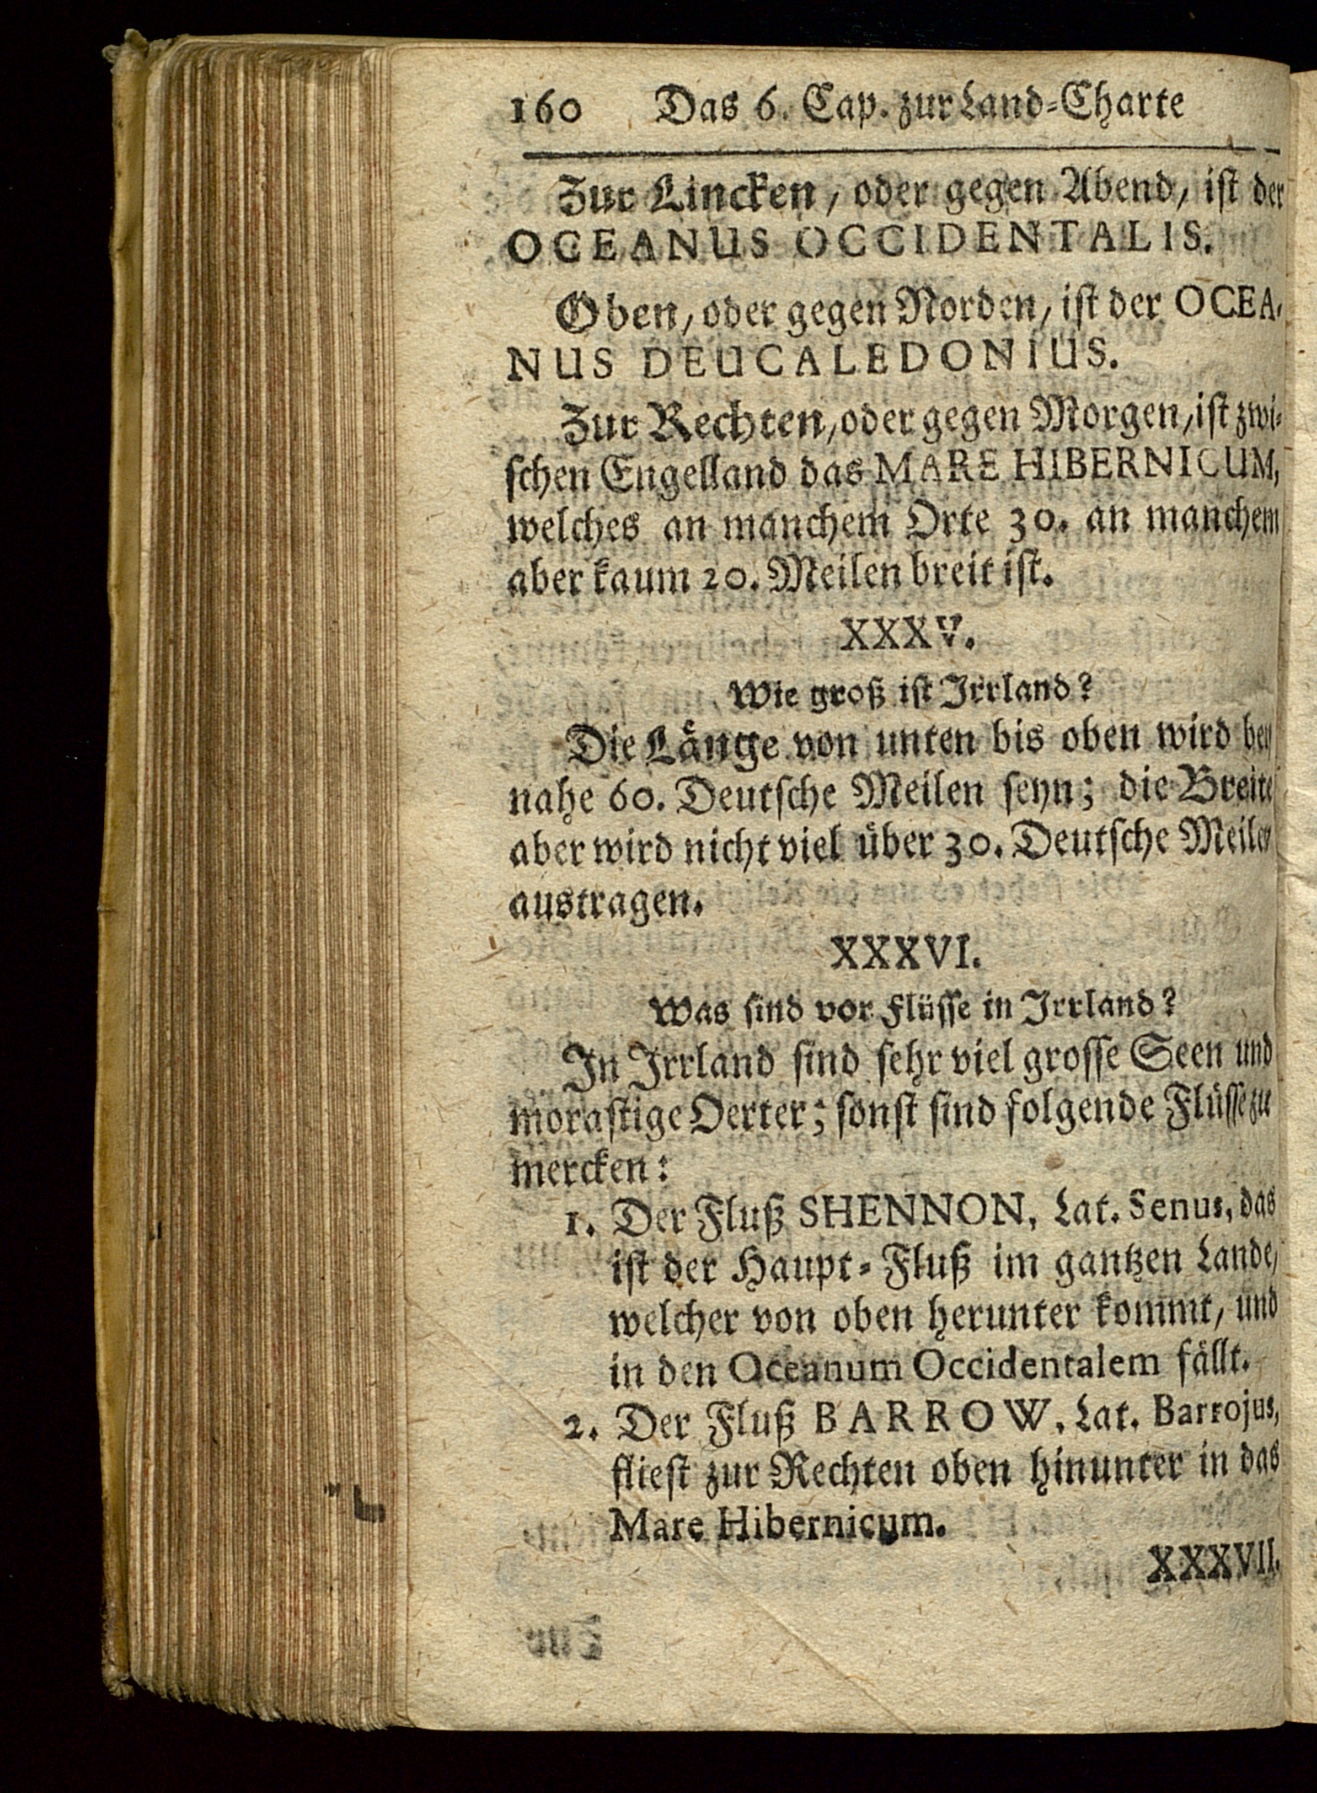 160 Das 6. Cap. zur Land-Charte
Zur Lincken, oder gegen Abend, ist der
OCEANUS OCCIDENTALIS.
Oben, oder gegen Norden, ist der OCEA-
NUS DEUCALEDONIUS.
Zur Rechten, oder gegen Morgen, ist zwi-
schen Engelland das MARE HIBERNICUM,
welches an manchem Orte 30. an manchem
aber kaum 20. Meilen breit ist.
XXXV.
Wie groß ist Irrland?
Die Länge von unten bis oben wird bey
nahe 60. Deutsche Meilen seyn; die Breite
aber wird nicht viel über 30. Deutsche Meilen
austragen.
XXXVI.
Was sind vor Flüsse in Irrland?
In Irrland sind sehr viel grosse Seen und
morastige Oerter; sonst sind folgende Flüsse zu
mercken:
1. Der Fluß SHENNON, Lat. Senus, das
ist der Haupt-Fluß im gantzen Lande,
welcher von oben herunter kommt, und
in den Oceanum Occidentalem fällt.
2. Der Fluß BARROW, Lat. Barrojus,
fliest zur Rechten oben hinunter in das
Mare Hibernicum.
XXXVII.